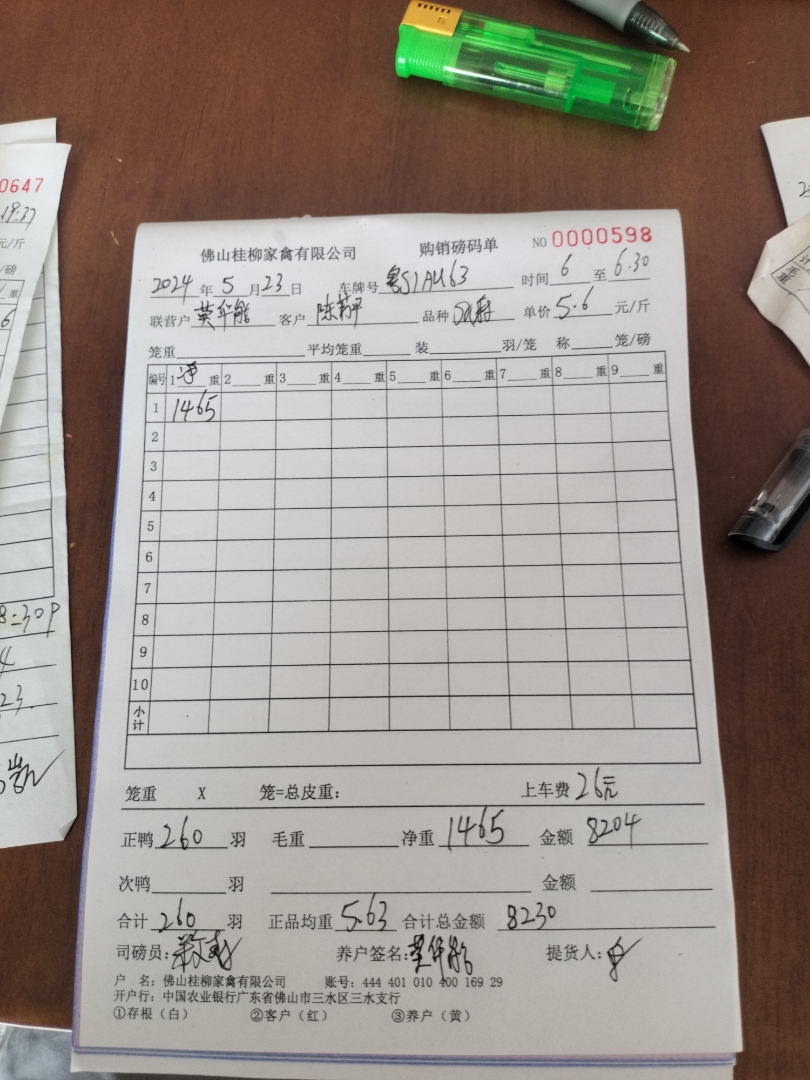 佛山桂柳家禽有限公司 购销磅码单 NO 0000598
2024 年 5 月 23 日 车牌号 粤S1AU63 时间 6 至 6:30
联营户 客户 品种 单价 5.6 元/斤
笼重 平均笼重 装 羽/笼 称 笼/磅
编号 1 净 重 2 重 3 重 4 重 5 重 6 重 7 重 8 重 9 重
1 1465
2
3
4
5
6
7
8
9
10
小计
笼重 X 笼=总皮重: 上车费 26元
正鸭 260 羽 毛重 净重 1465 金额 8204
次鸭 羽 金额
合计 260 羽 正品均重 5.63 合计总金额 8230
司磅员: 养户签名: 提货人:
户 名: 佛山桂柳家禽有限公司 账号: 444 401 010 400 169 29
开户行: 中国农业银行广东省佛山市三水区三水支行
①存根(白) ②客户(红) ③养户(黄)
0647
19:37
元/斤
/磅
重
6
8:30P
4
23.